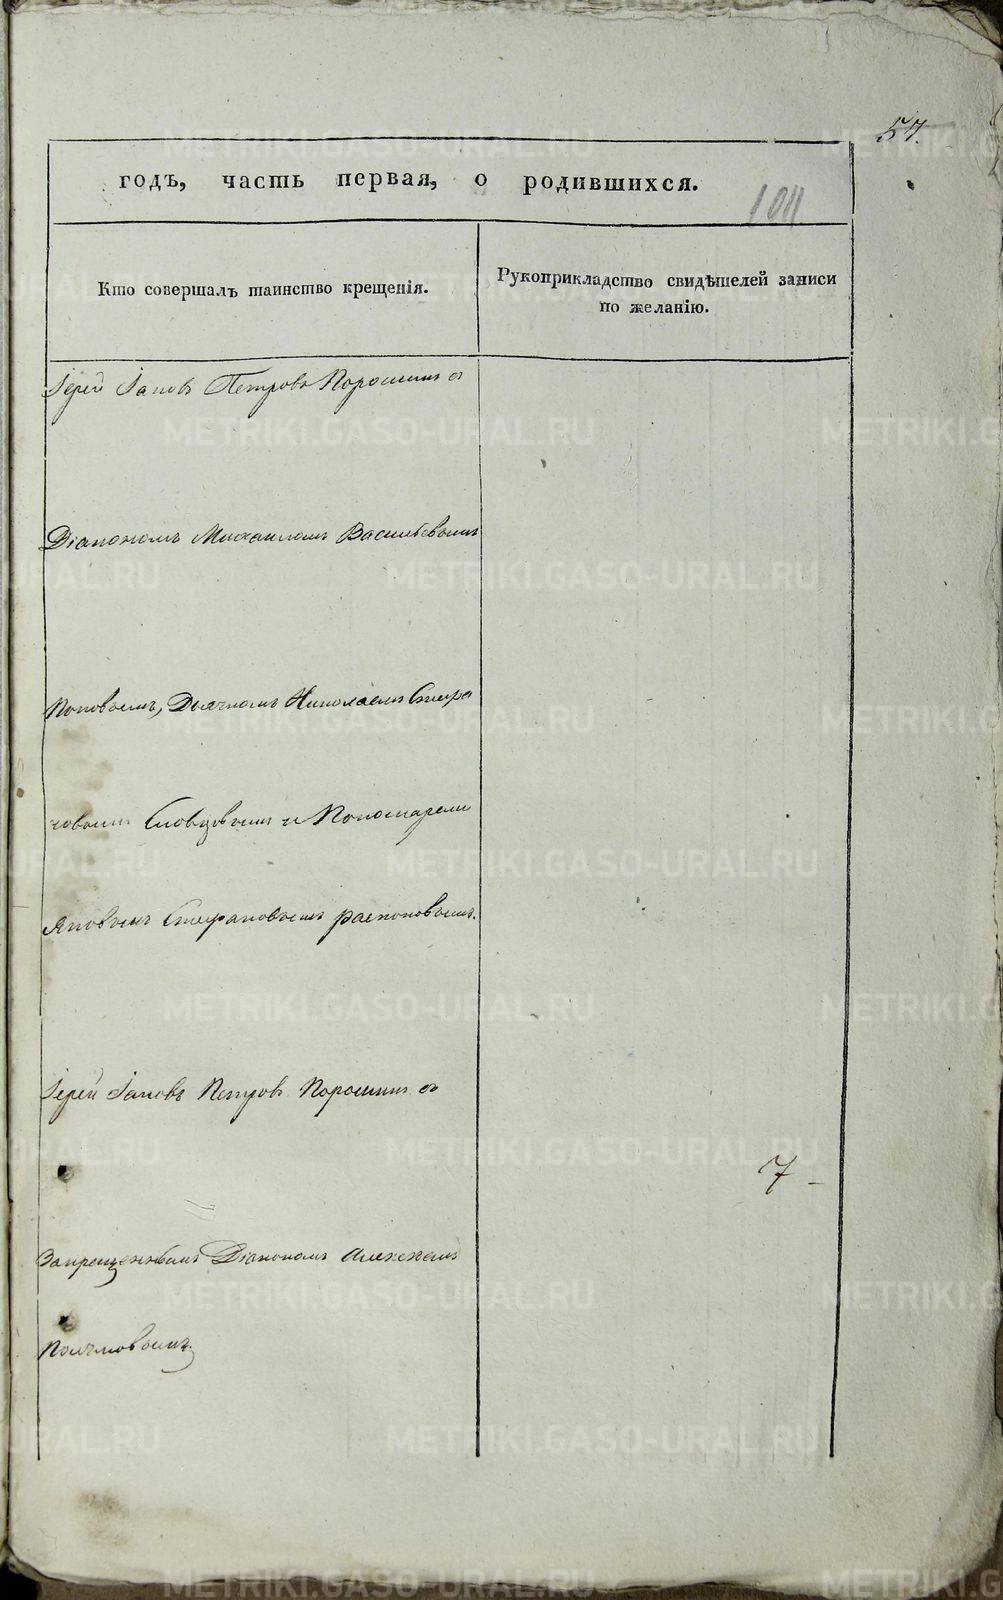 57.
годъ, часть первая, о родившихся.
104
Кто совершалъ таинство крещенія.
Рукоприкладство свидѣтелей записи
по желанію.
Іерей Іаковъ Петровъ Порошинъ съ
Діакономъ Михаиломъ Васильевымъ
Поповымъ, Дьячкомъ Николаемъ Стефа
новымъ Словцовымъ и Пономаремъ
Яковымъ Стефановымъ распоповымъ.
Іерей Іаковъ Петровъ Порошинъ съ
7
Запрещеннымъ Діакономъ Алексѣемъ